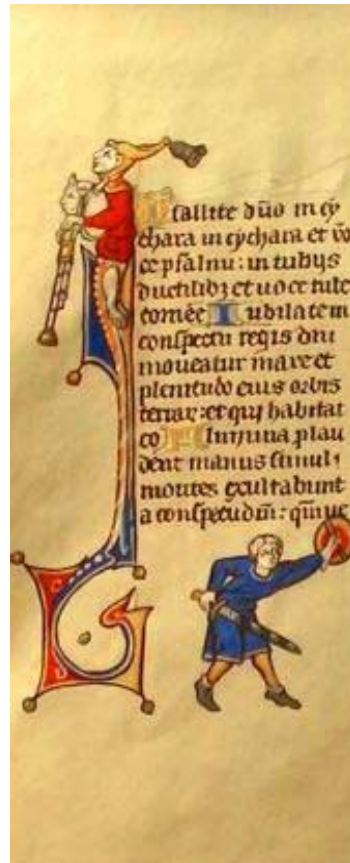 Psallite dño in cy
thara in cythara et vo
ce psalmi: in tubijs
ductilibȝ et uoce tube
cornee Iubilate in
conspectu regis dñi
moueatur mare et
plenitudo eius orbis
terrar: et qui habitāt
eo Flumina plau
dent manus simul
montes exultabunt
a conspectu dñi: qm̄ ue